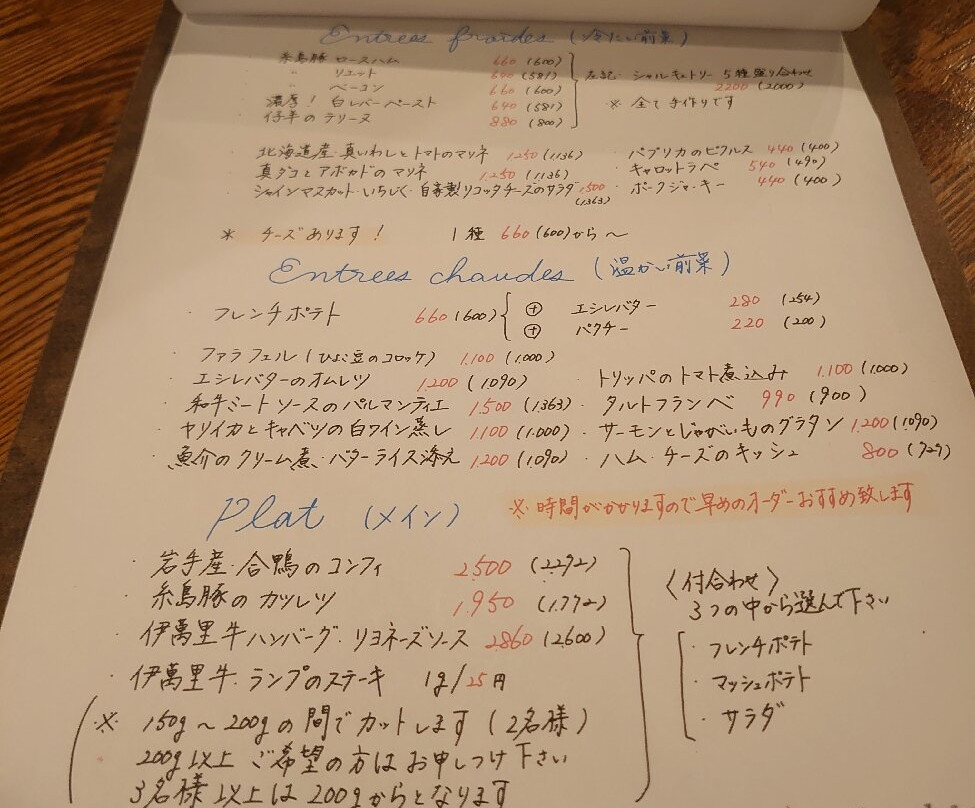 Entrees froides (冷たい前菜)
糸島豚 ロースハム 660 (600)
〃 リエット 640 (581)
〃 ベーコン 660 (600)
濃厚！白レバーペースト 640 (581)
仔羊のテリーヌ 880 (800)
左記 シャルキュトリー 5種盛り合わせ
2200 (2000)
※ 全て手作りです
北海道産・真いわしとトマトのマリネ 1.250 (1.136)
真ダコとアボカドのマリネ 1.250 (1.136)
シャインマスカット・いちじく・自家製リコッタチーズのサラダ 1.500
(1.363)
・パプリカのピクルス 440 (400)
・キャロットラペ 540 (490)
・ポークジャーキー 440 (400)
※ チーズあります！ 1種 660 (600)から～
Entrees chaudes (温かい前菜)
・フレンチポテト 660 (600)
⊕ エシレバター 280 (254)
⊕ パクチー 220 (200)
・ファラフェル (ひよこ豆のコロッケ) 1.100 (1.000)
・エシレバターのオムレツ 1.200 (1.090)
・和牛ミートソースのパルマンティエ 1.500 (1.363)
・ヤリイカとキャベツの白ワイン蒸し 1.100 (1.000)
・魚介のクリーム煮・バターライス添え 1.200 (1.090)
・トリッパのトマト煮込み 1.100 (1.000)
・タルトフランベ 990 (900)
・サーモンとじゃがいものグラタン 1.200 (1.090)
・ハム・チーズのキッシュ 800 (727)
Plat (メイン)
※ 時間がかかりますので早めのオーダーおすすめ致します
・岩手産・合鴨のコンフィ 2.500 (2.292)
・糸島豚のカツレツ 1.950 (1.772)
・伊萬里牛ハンバーグ・リヨネーズソース 2860 (2600)
・伊萬里牛・ランプのステーキ 1g/25円
※ 150g～200gの間でカットします (2名様)
200g以上ご希望の方はお申しつけ下さい
3名様以上は200gからとなります
〈付合わせ〉
3つの中から選んで下さい
・フレンチポテト
・マッシュポテト
・サラダ